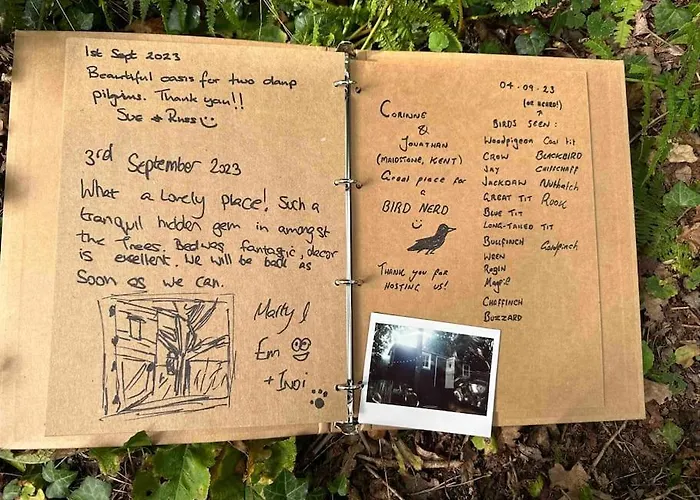 1st Sept 2023
Beautiful oasis for two damp
pilgrims. Thank you!!
Sue & Russ
3rd September 2023
What a lovely place! Such a
tranquil hidden gem in amongst
the trees. Bed was fantastic, decor
is exellent. We will be back as
soon as we can.
Marty &
Em
+ Indi
CORINNE
&
JONATHAN
(MAIDSTONE, KENT)
Great place for
a
BIRD NERD
THANK YOU FOR
HOSTING US!
04.09.23
(OR HEARD!)
BIRDS SEEN:
Woodpigeon Coal tit
CROW BLACKBIRD
JAY CHIFFCHAFF
JACKDAW Nuthatch
GREAT TIT ROOK
BLUE TIT
LONG-TAILED TIT
BULLFINCH Goldfinch
WREN
ROBIN
Magpie
CHAFFINCH
BUZZARD